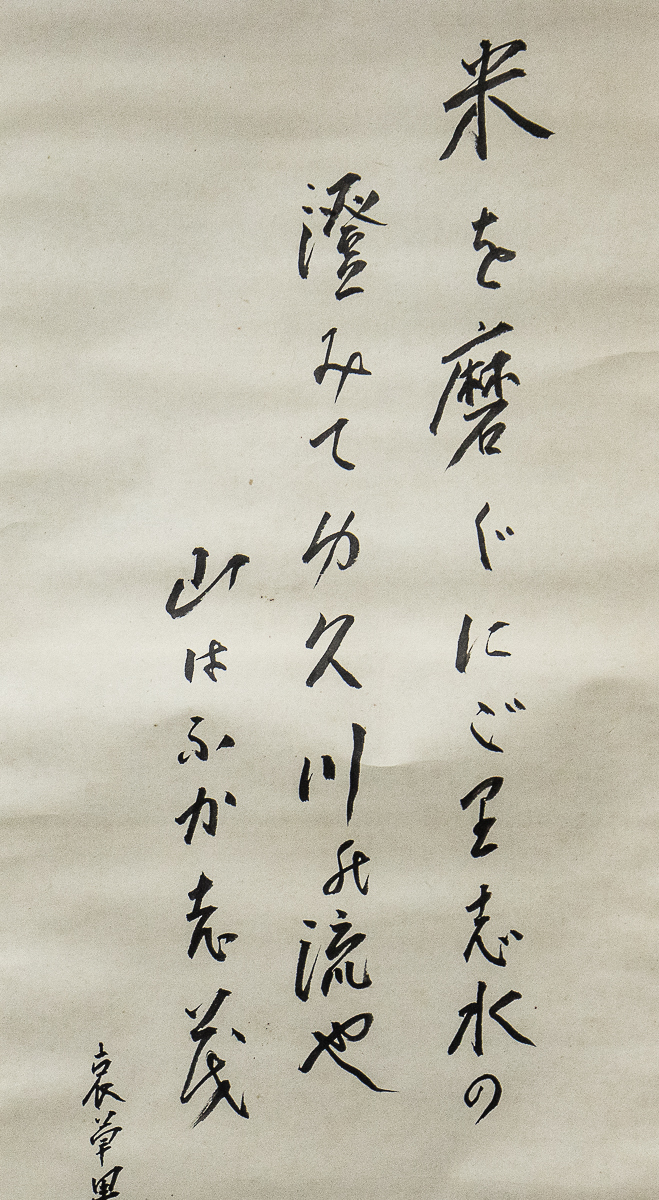 米を磨ぐにご里志水の
澄みてゆ久川能流也
山はふか志茂
哀草果